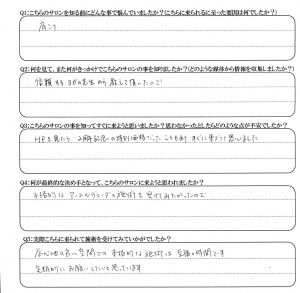 Q1:こちらのサロンを知る前にどんな事で悩んでいましたか?こちらに来られるに至った要因は何でしたか?
肩こり
Q2:何を見て、また何がきっかけでこちらのサロンの事を知りましたか?(どのような媒体から情報を収集しましたか?)
信頼するヨガの先生から教えて頂いたので
Q3:こちらのサロンの事を知ってすぐに来ようと思いましたか?思わなかったとしたらどのような点が不安でしたか?
HPを見たら 2周年記念の特別価格だったこともあり すぐに来ようと思いました
Q4:何が最終的な決め手となって、こちらのサロンに来ようと思われましたか?
本格的な の施術を受けてみたかったので
Q5:実際こちらに来られて施術を受けてみていかがでしたか?
居心地の良い空間での 本格的な施術は 至福の時間です
定期的に お願いしたいと思っています